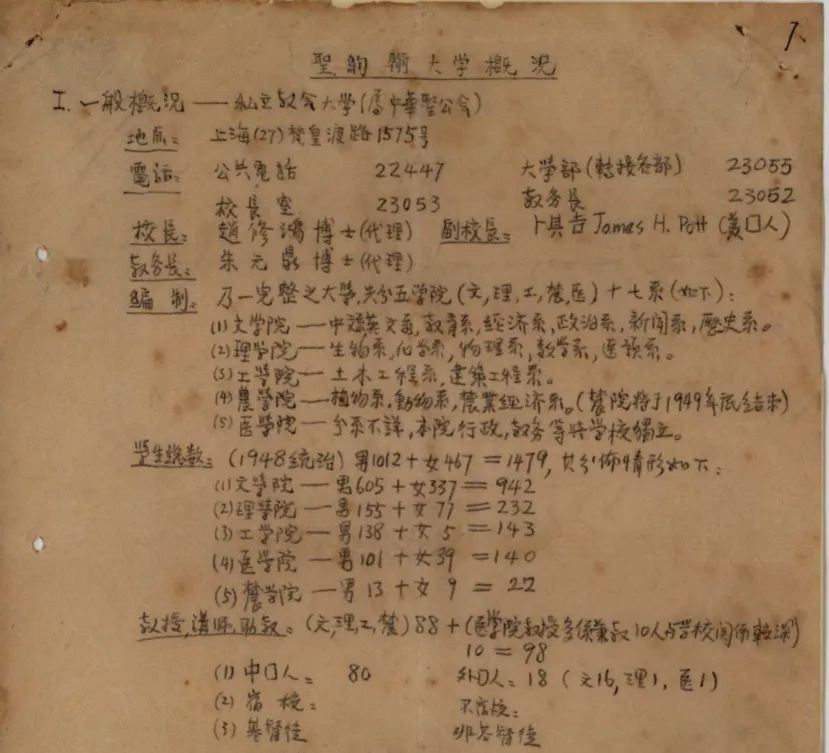 7.
聖約翰大学概况
I. 一般概况——私立教会大學(属中華聖公会)
地点: 上海(27)梵皇渡路1575号
電話: 公共電話 22447 大學部(轉接各部) 23055
校長室 23053 教务長 23052
校長: 趙修鴻博士(代理) 副校長: 卜其吉 James H. Pott (美囗人)
教务長: 朱元鼎博士(代理)
编制: 乃一完整之大學,共分五学院(文,理,工,農,医)十七系(如下):
(1)文学院——中文系,英文系,教育系,經济系,政治系,新闻系,歷史系。
(2)理學院——生物系,化学系,物理系,数学系,医预系。
(3)工學院——土木工程系,建築工程系。
(4)農學院——植物系,動物系,農業經济系。(農院将于1949年底结束)
(5)医學院——分系不詳,本院行政,教务等共学校獨立。
學生總数: (1948统治) 男1012+女467=1479, 其分佈情形如下:
(1)文學院——男605+女337=942
(2)理學院——男155+女77=232
(3)工学院——男138+女5=143
(4)医學院——男101+女39=140
(5)農學院——男13+女9=22
教授,講师,助教: (文,理,工,農)88+(医學院教授多係兼叔10人与学校関係較深)
10=98
(1)中囗人: 80 外囗人: 18 (文16,理1,医1)
(2)宿校: 不宿校:
(3)基督徒 非基督徒